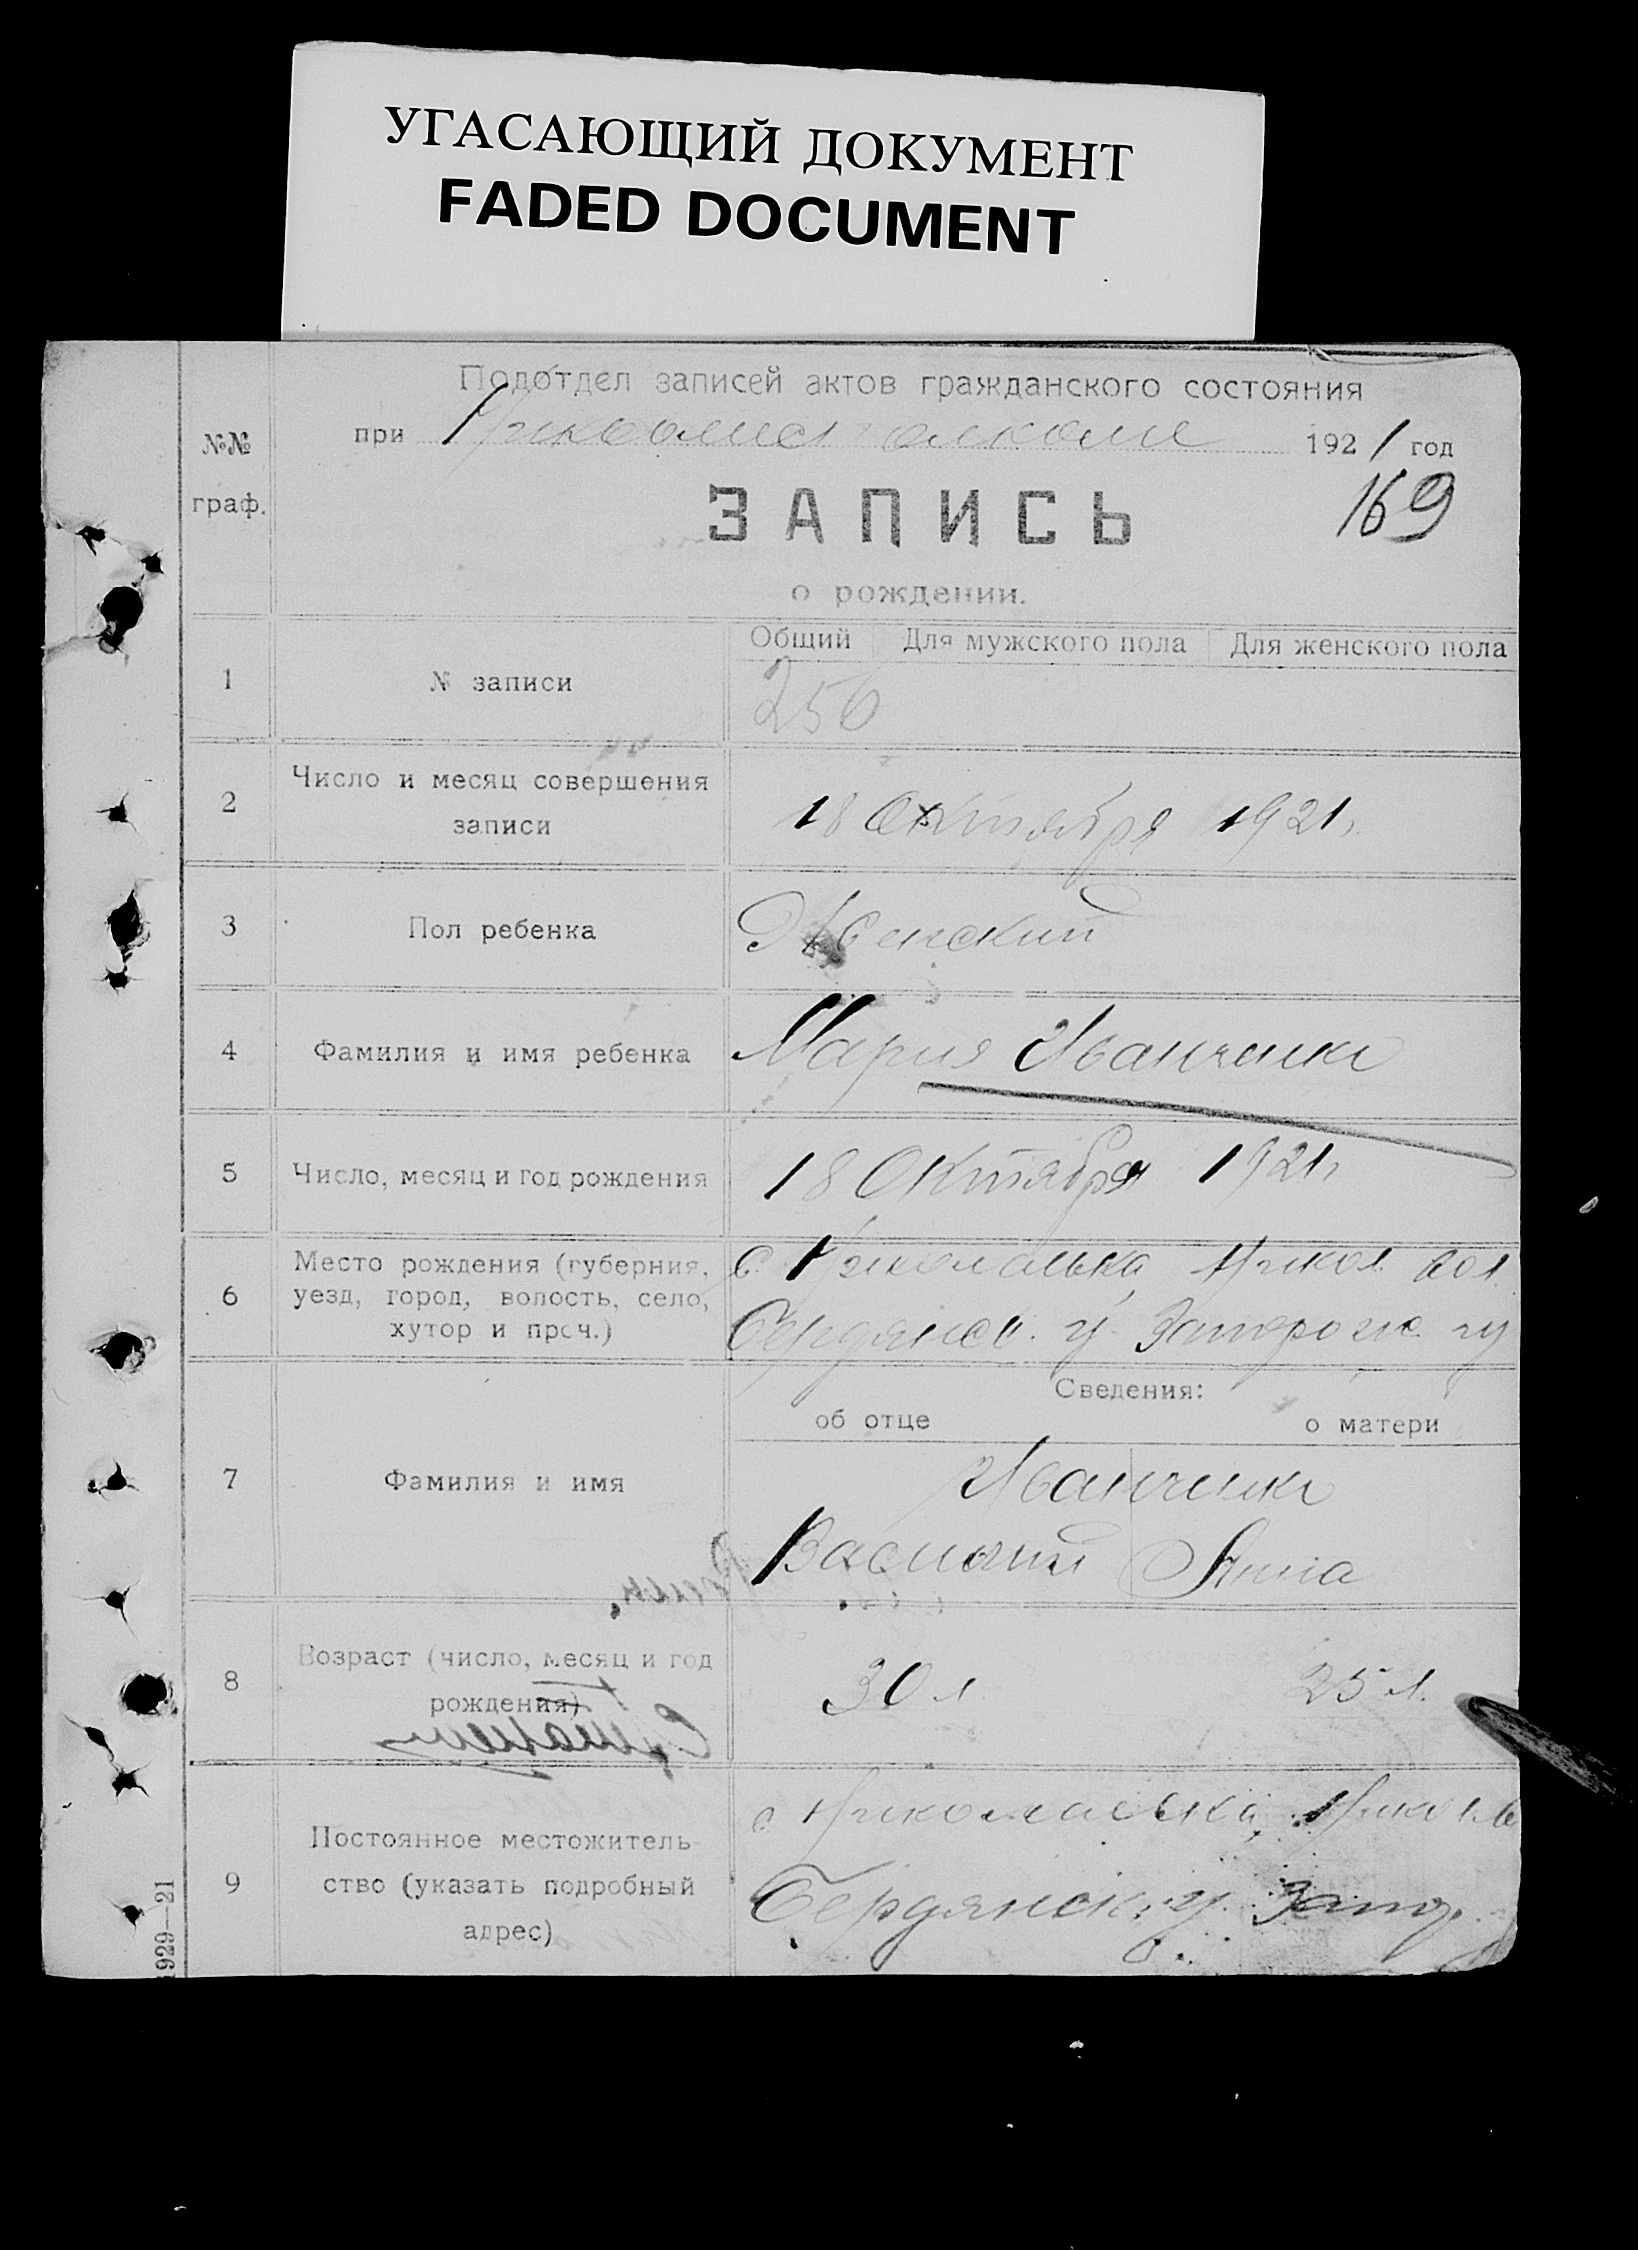 УГАСАЮЩИЙ ДОКУМЕНТ
FADED DOCUMENT
Подотдел записей актов гражданского состояния
№№
граф.
при 1921 год
169
ЗАПИСЬ
о рождении.
Общий Для мужского пола Для женского пола
1 № записи 256
2 Число и месяц совершения
записи
18 Октября 1921 г.
3 Пол ребенка Женский
4 Фамилия и имя ребенка Мария Иванченко
5 Число, месяц и год рождения 18 Октября 1921 г.
6 Место рождения (губерния,
уезд, город, волость, село,
хутор и проч.)
с. Николаевка Никол. вол.
Бердянск. у. Запорож. гу
Сведения:
об отце о матери
7 Фамилия и имя
Иванченко
Василий Анна
8 Возраст (число, месяц и год
рождения)
30 л 25 л.
9 Постоянное местожитель-
ство (указать подробный
адрес)
с. Николаевка
Бердянск. у. Запор.
1929—21